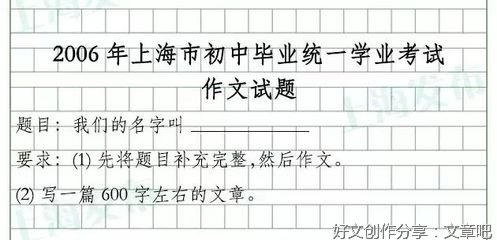 2006 年上海市初中毕业统一学业考试
作文试题
题目：我们的名字叫 ____________
要求：(1) 先将题目补充完整,然后作文。
(2) 写一篇 600 字左右的文章。
上海发布
好文创作分享：文章吧